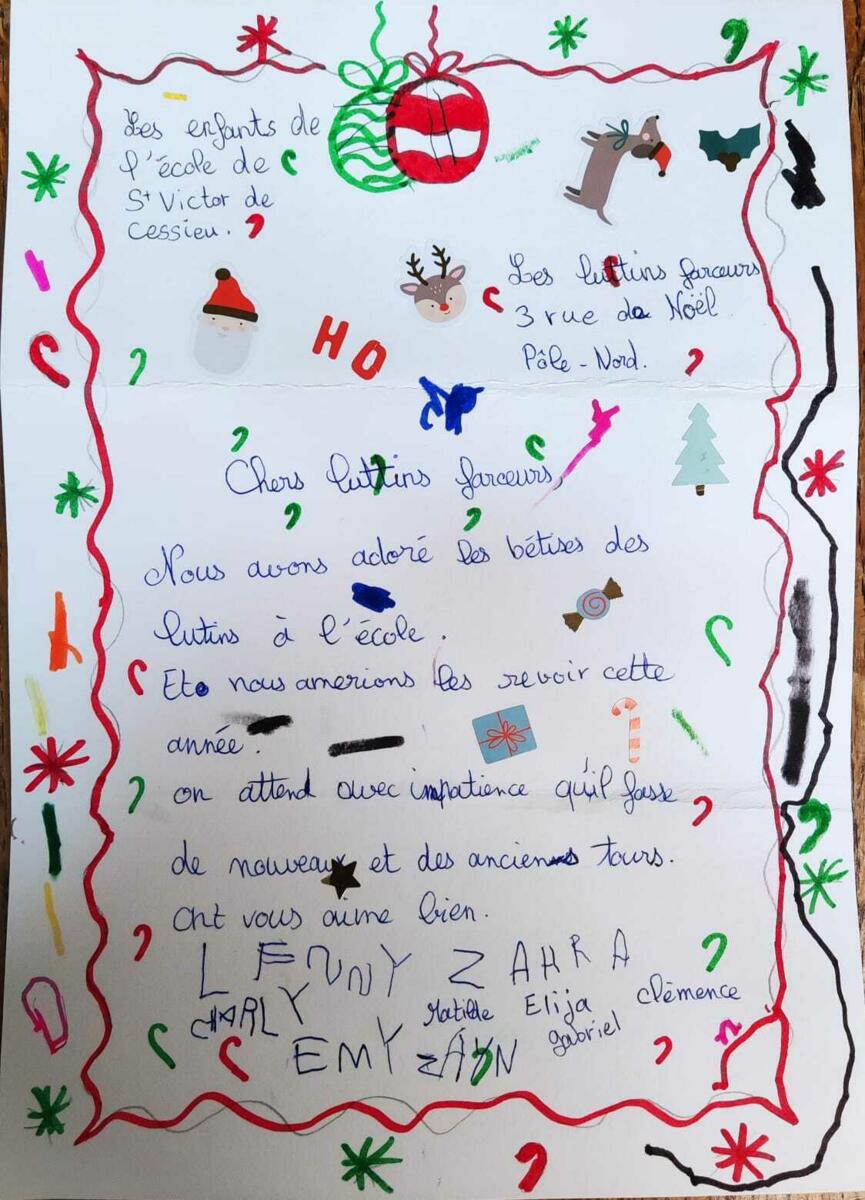 Les enfants de
l'école de
St Victor de
Cessieu.
Les luttins farceurs
3 rue de Noël
Pôle-Nord.
HO
Chers luttins farceurs,
Nous avons adoré les bétises des
lutins à l'école.
Et nous amerions les revoir cette
année.
on attend avec impatience qu'il fasse
de nouveaux et des anciens tours.
Ont vous aime bien.
LENNY ZAHRA
CHARLY Matilde Elija Clèmence
EMY ZAYN gabriel